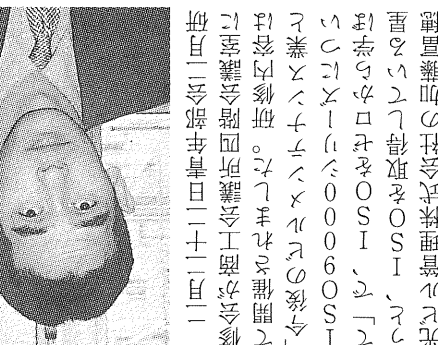 二月二十二日青年部会二月研
修会が商工会議所四階会議室に
て開催されました。研修内容は
「今後のビルメンテナンス業と
ISO9000シリーズについ
て」で、ISOをゼロから学ぼ
うと、ISOを取得している星
光ビル管理株式会社の加藤富